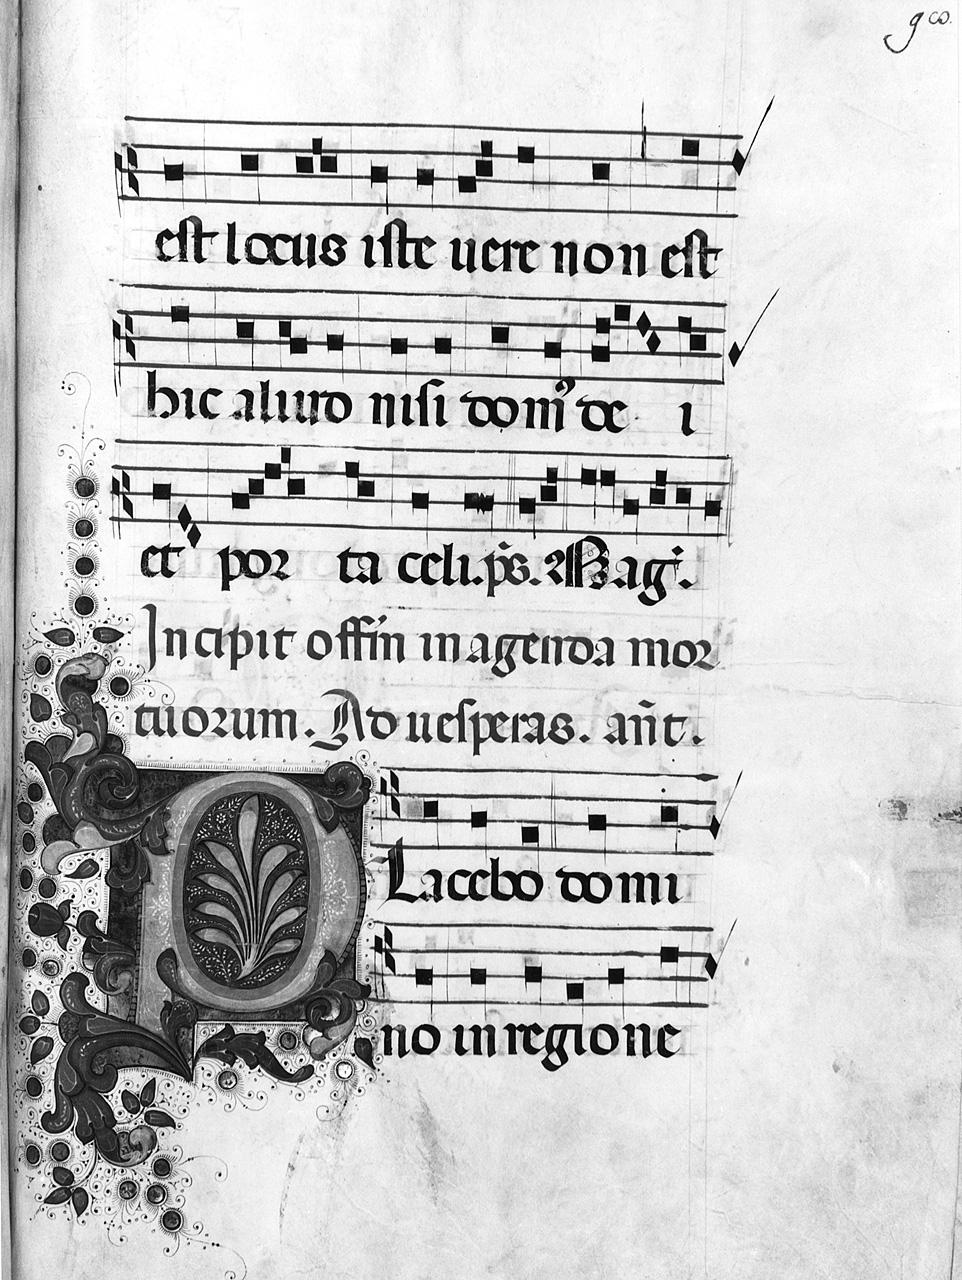 est locus iste uere non est
hic aliud nisi domꝰ de i
et por ta celi. p̄s. Maḡ.
Incipit offīn in agenda mor
tuorum. Ad uesperas. an̄t.
PLacebo domi
no in regione